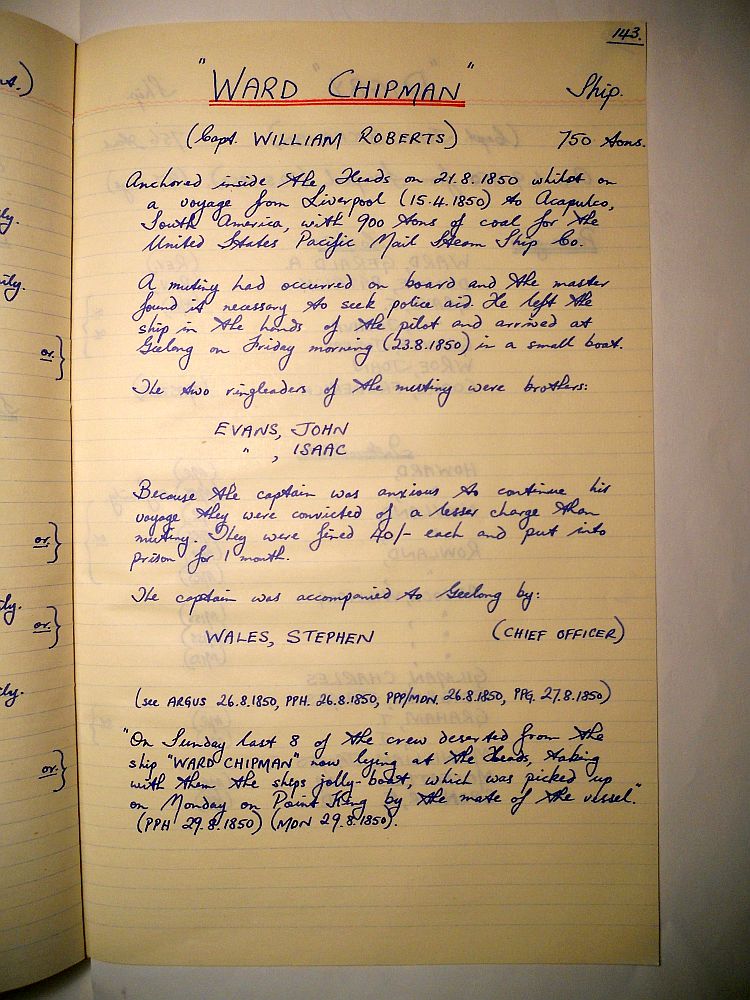 143.
"WARD CHIPMAN" Ship.
(Capt. WILLIAM ROBERTS) 750 tons.
Anchored inside the Heads on 21.8.1850 whilst on
a voyage from Liverpool (15.4.1850) to Acapulco,
South America, with 900 tons of coal for the
United States Pacific Mail Steam Ship Co.
A mutiny had occurred on board and the master
found it necessary to seek police aid. He left the
ship in the hands of the pilot and arrived at
Geelong on Friday morning (23.8.1850) in a small boat.
The two ringleaders of the mutiny were brothers:
EVANS, JOHN
" , ISAAC
Because the captain was anxious to continue his
voyage they were convicted of a lesser charge than
mutiny. They were fined 40/- each and put into
prison for 1 month.
The captain was accompanied to Geelong by:
WALES, STEPHEN (CHIEF OFFICER)
(see ARGUS 26.8.1850, PPH. 26.8.1850, PPP/MON. 26.8.1850, PPG. 27.8.1850)
"On Sunday last 8 of the crew deserted from the
ship "WARD CHIPMAN" now lying at the Heads, taking
with them the ships jolly-boat, which was picked up
on Monday on Point King by the mate of the vessel."
(PPH 29.8.1850) (MDN 29.8.1850).
or.}
or.}
or.}
or.}